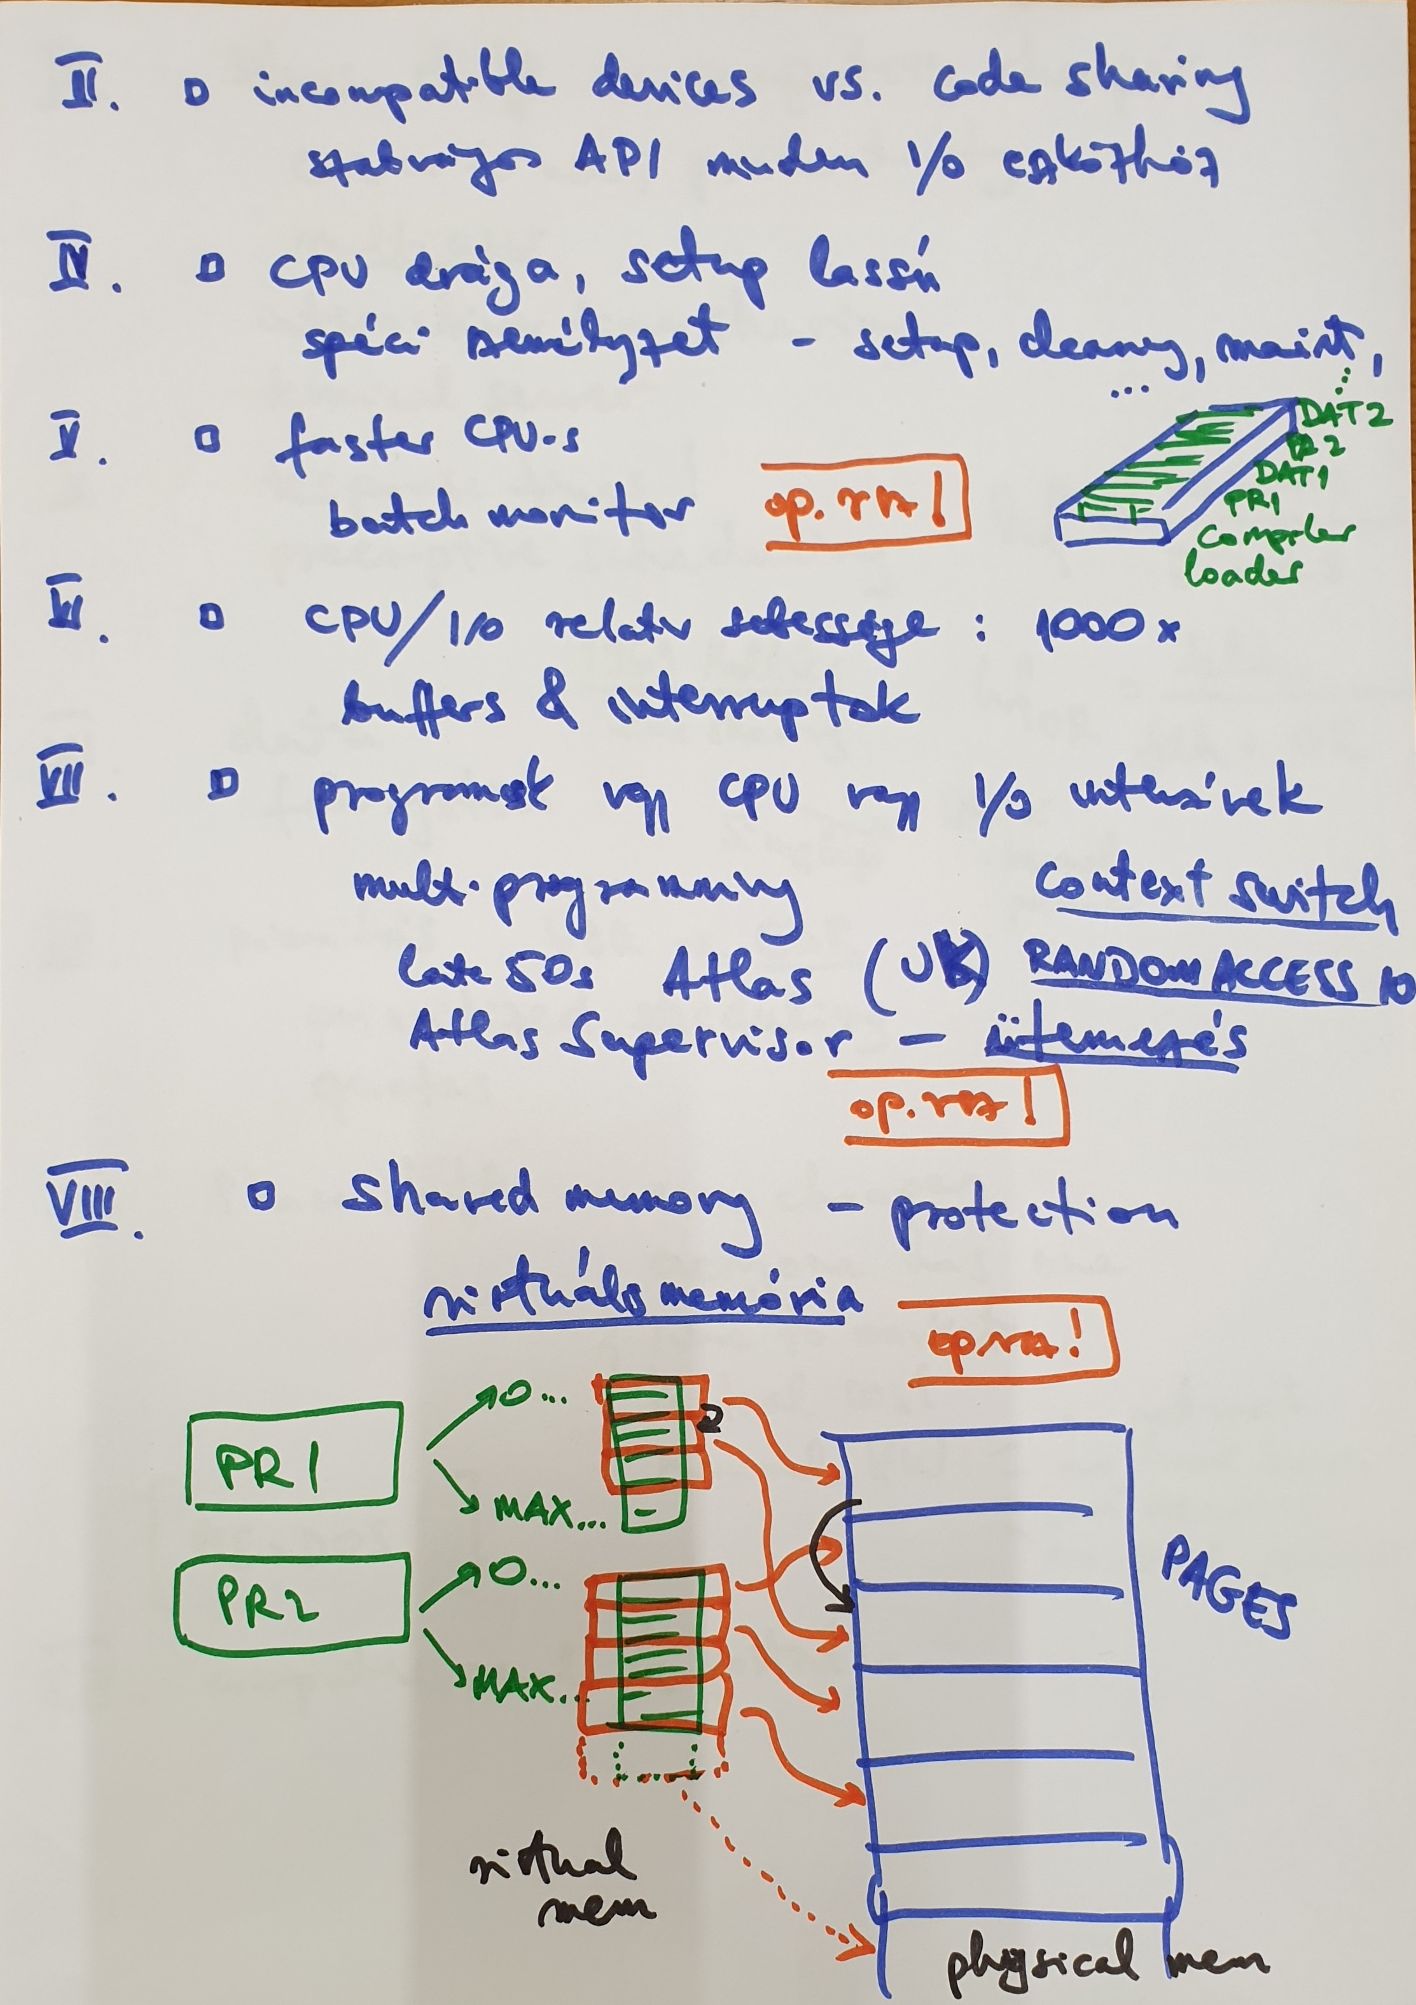 III. □ incompatible devices vs. code sharing
szabványos API minden I/O eszközhöz
IV. □ CPU drága, setup lassú
spéci személyzet - setup, cleanup, maint,
...
V. □ faster CPU-s
batch monitor
op. rsz!
DAT2
PR2
DAT1
PR1
compiler
loader
VI. □ CPU/I/O relatív sebessége : 1000x
buffers & interruptok
VII. □ programok vagy CPU vagy I/O intenzívek
multi-programming
context switch
late 50s Atlas (UK) RANDOM ACCESS IO
Atlas Supervisor - ütemezés
op. rsz!
VIII. □ shared memory - protection
virtuális memória
op rsz!
PR1
0...
MAX...
PR2
0...
MAX...
PAGES
virtual
mem
physical mem